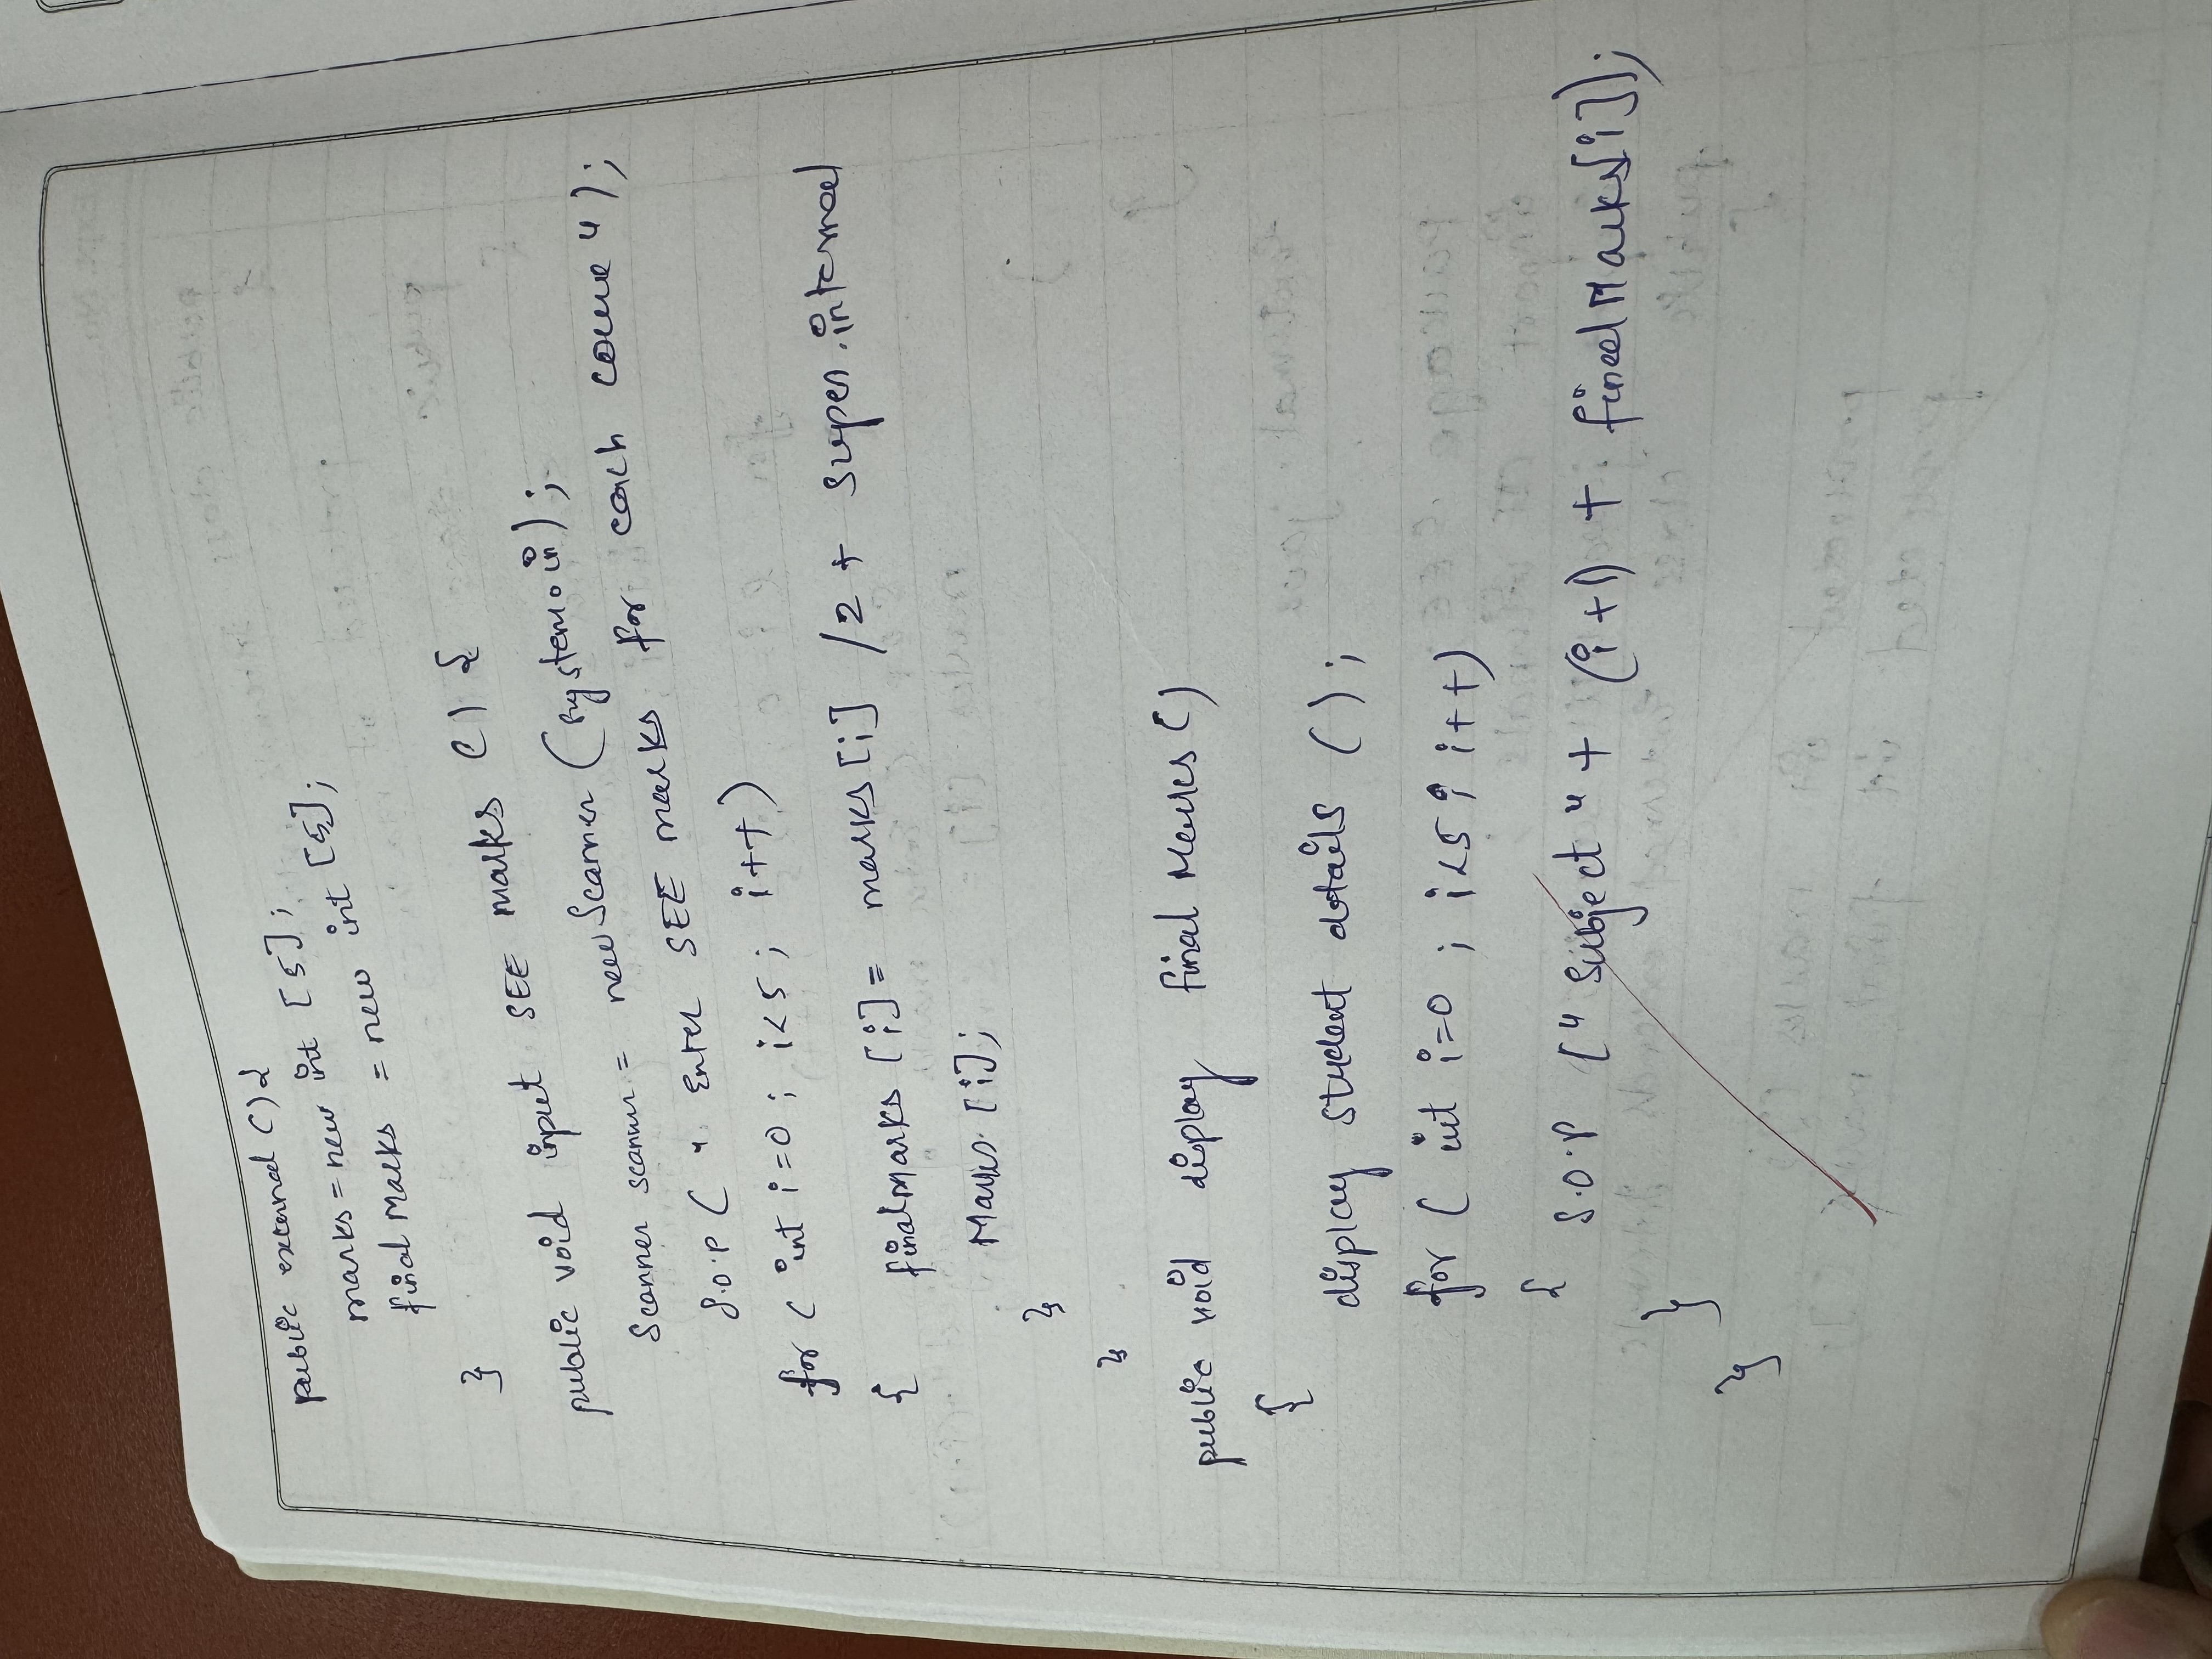 public external () {
marks = new int [5];
final Marks = new int [5];
}
public void input SEE marks () {
Scanner scanner = new Scanner (system.in);
S.O.P ( " Enter SEE marks for each course " );
for ( int i=0 ; i<5 ; i++)
{ finalMarks [i] = marks [i] /2 + super.internal
Marks [i];
}
}
public void display final Marks ()
{
display student details ();
for ( int i=0 ; i<5 ; i++)
{ S.O.P (" Subject " + (i+1) + finalMarks[i]);
}
}